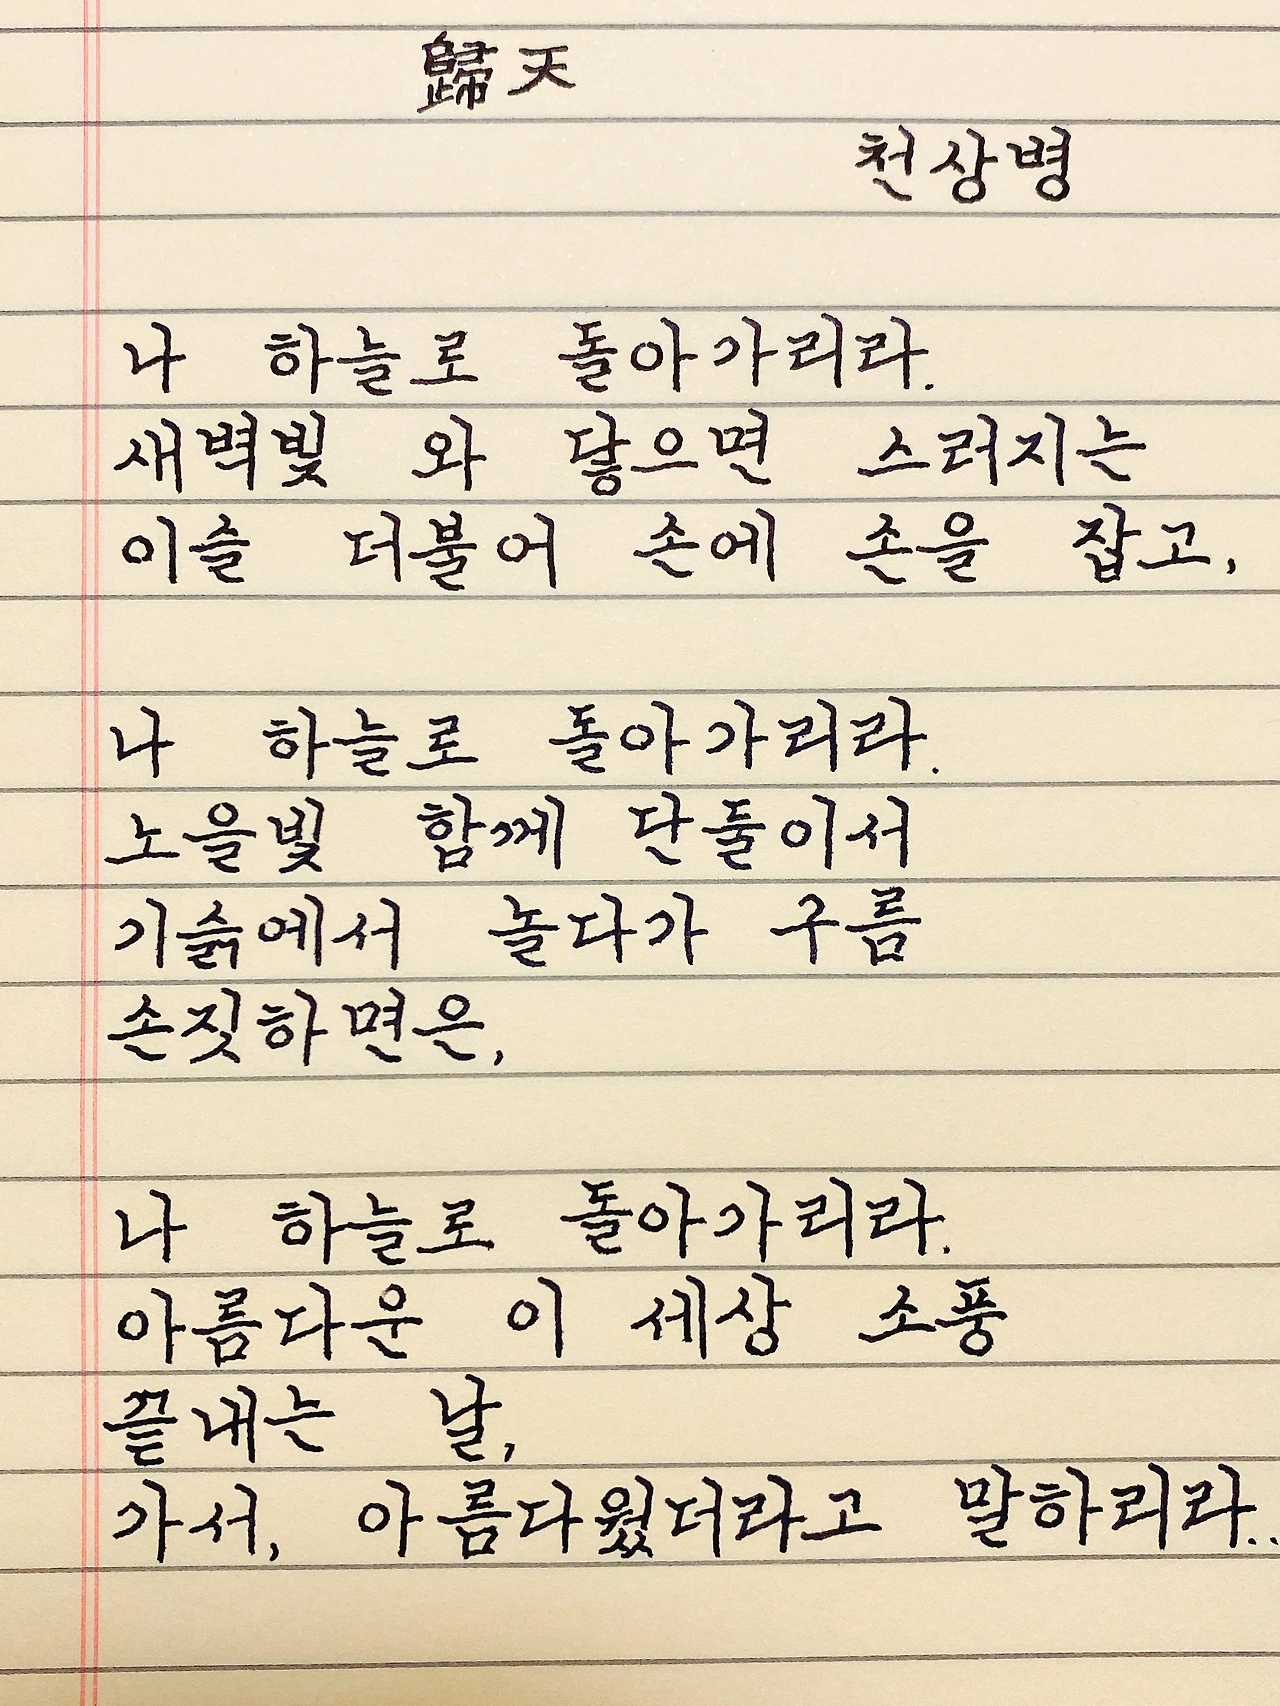 歸天
천상병
나 하늘로 돌아가리라.
새벽빛 와 닿으면 스러지는
이슬 더불어 손에 손을 잡고,
나 하늘로 돌아가리라.
노을빛 함께 단둘이서
기슭에서 놀다가 구름
손짓하면은,
나 하늘로 돌아가리라.
아름다운 이 세상 소풍
끝내는 날,
가서, 아름다웠더라고 말하리라..